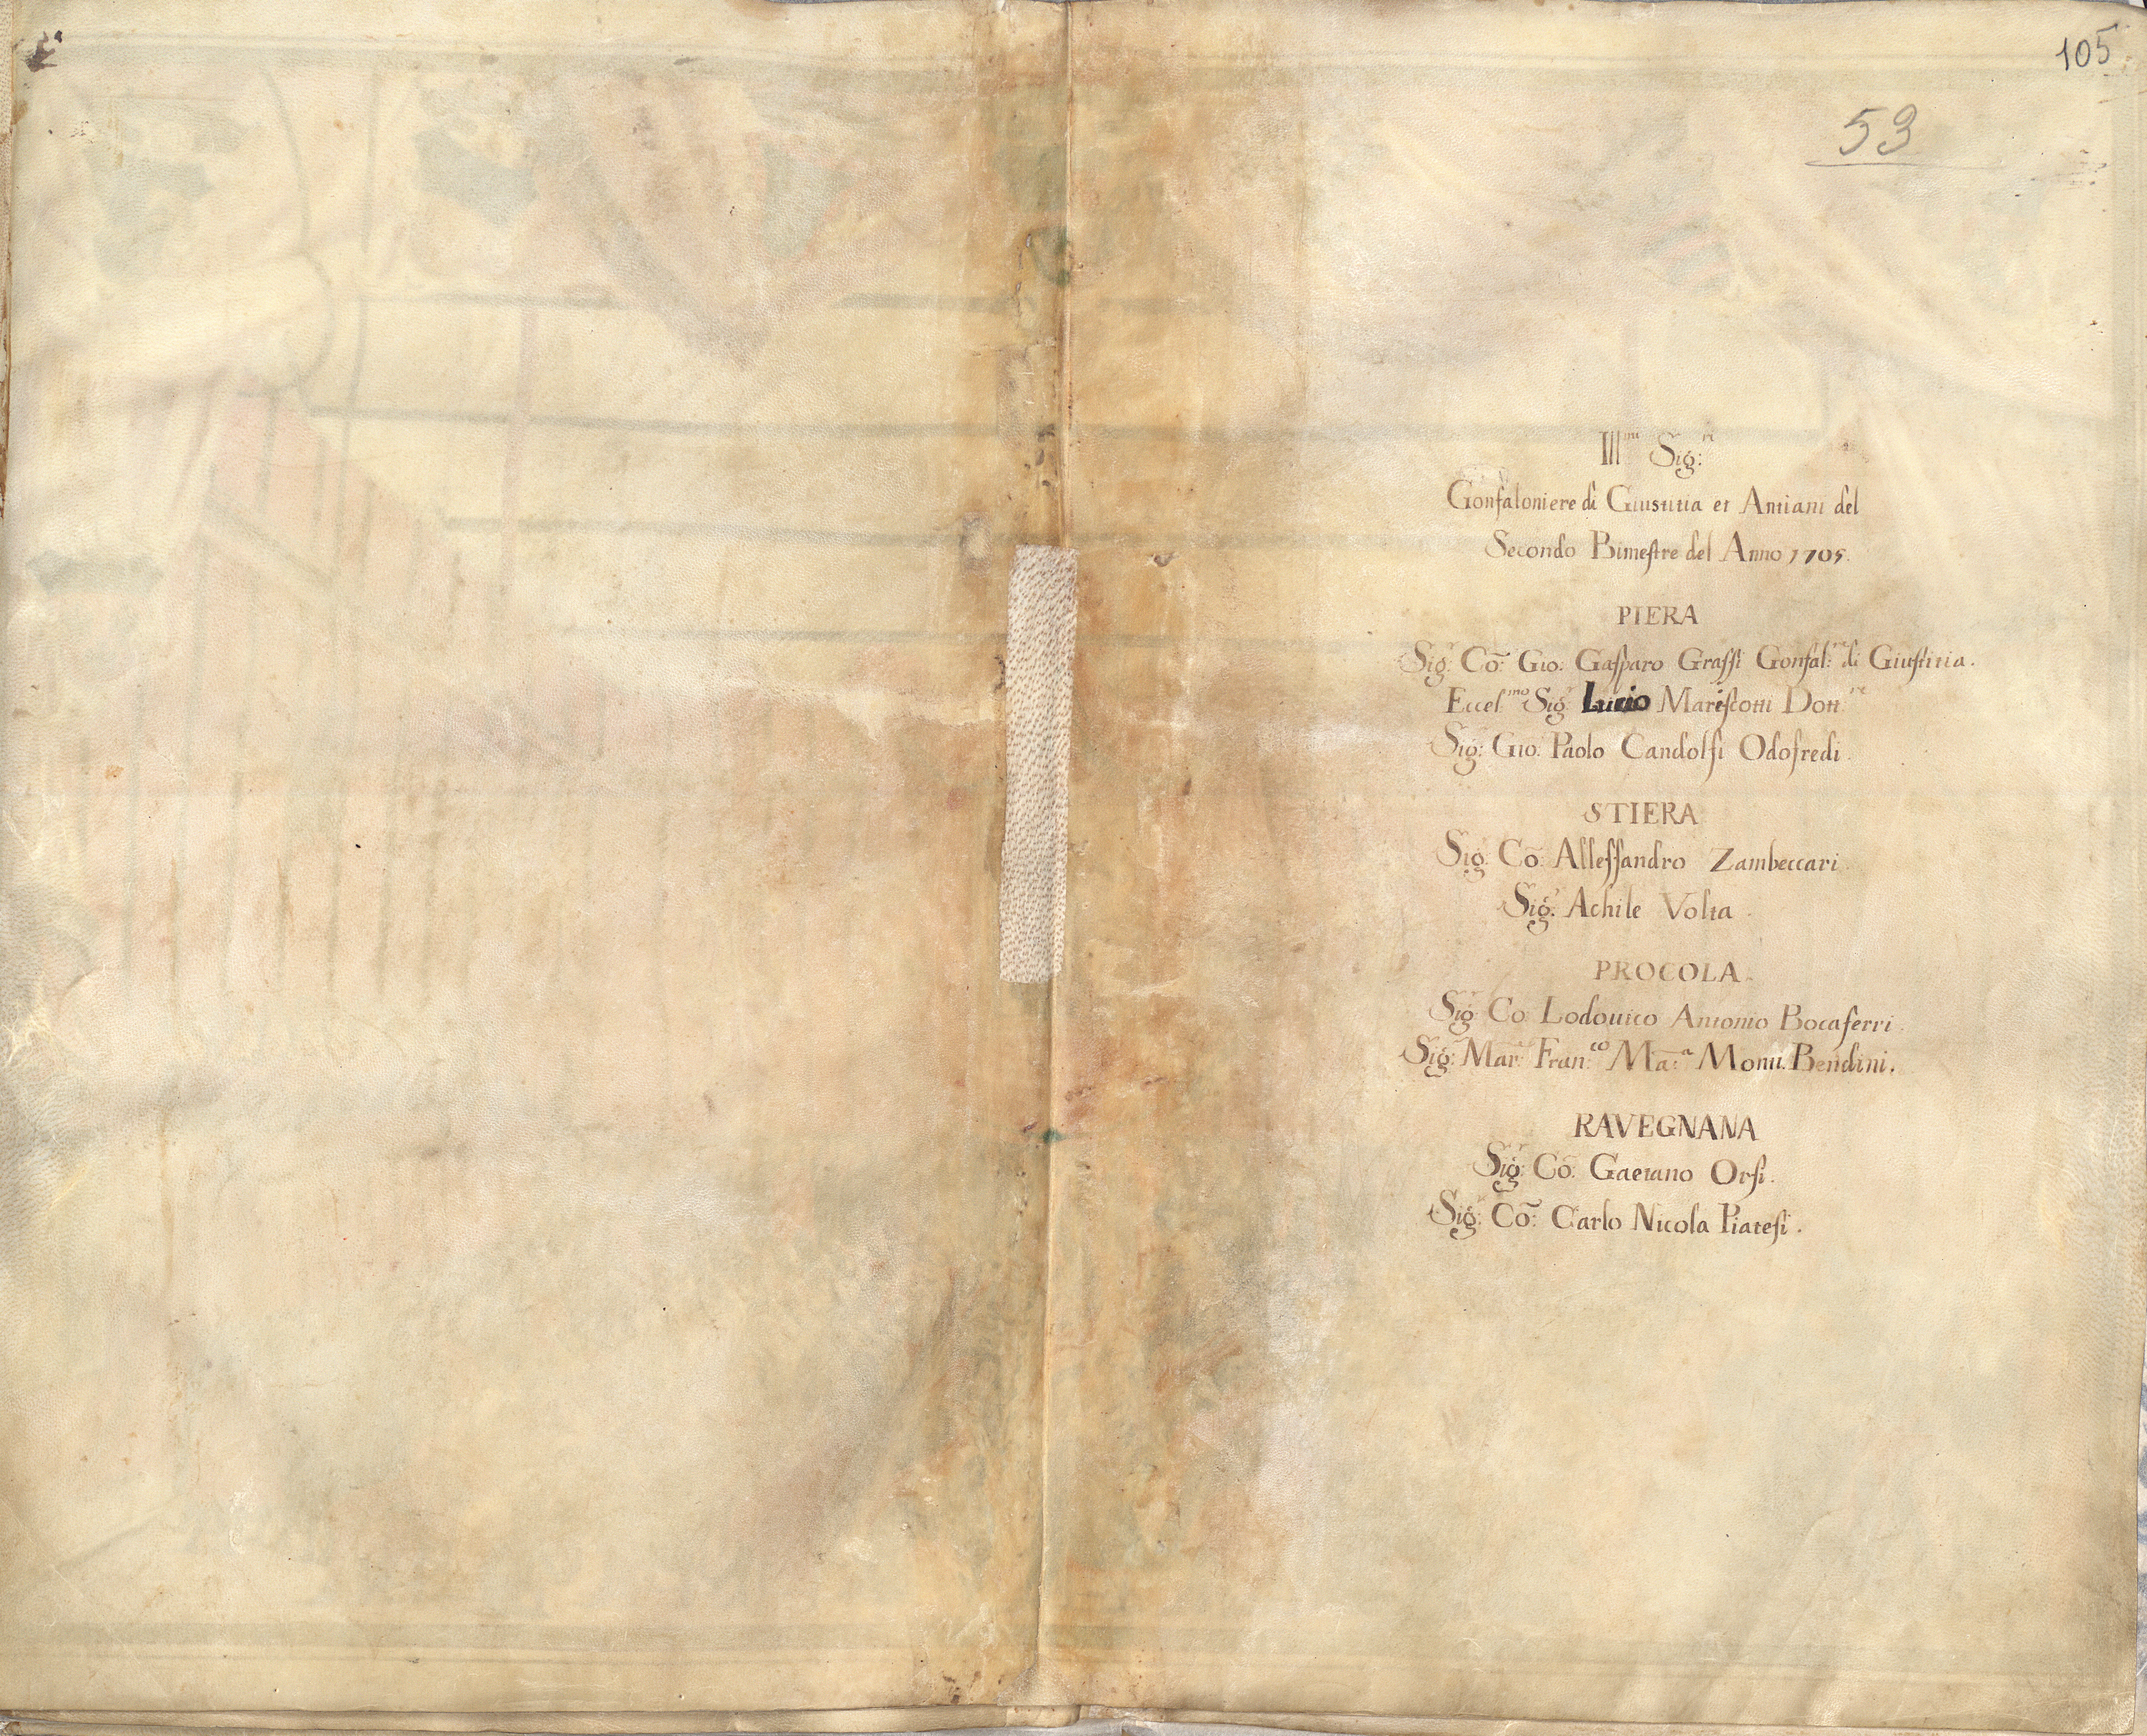 105
53
Ill.mi Sig:ri
Gonfaloniere di Giustitia et Antiani del
Secondo Bimestre del Anno 1705.
PIERA
Sig.r Cō: Gio: Gasparo Grassi Gonfal:re di Giustitia.
Eccel.mo Sig.r Lucio Mariscotti Dott.re
Sig.r Gio: Paolo Candolfi Odofredi.
STIERA
Sig.r Cō: Allessandro Zambeccari.
Sig.r Achile Volta.
PROCOLA.
Sig.r Co: Lodouico Antonio Bocaferri.
Sig.r Mar: Fran:co Ma:a Monti. Bendini.
RAVEGNANA
Sig.r Cō: Gaetano Orsi.
Sig.r Cō: Carlo Nicola Piatesi.